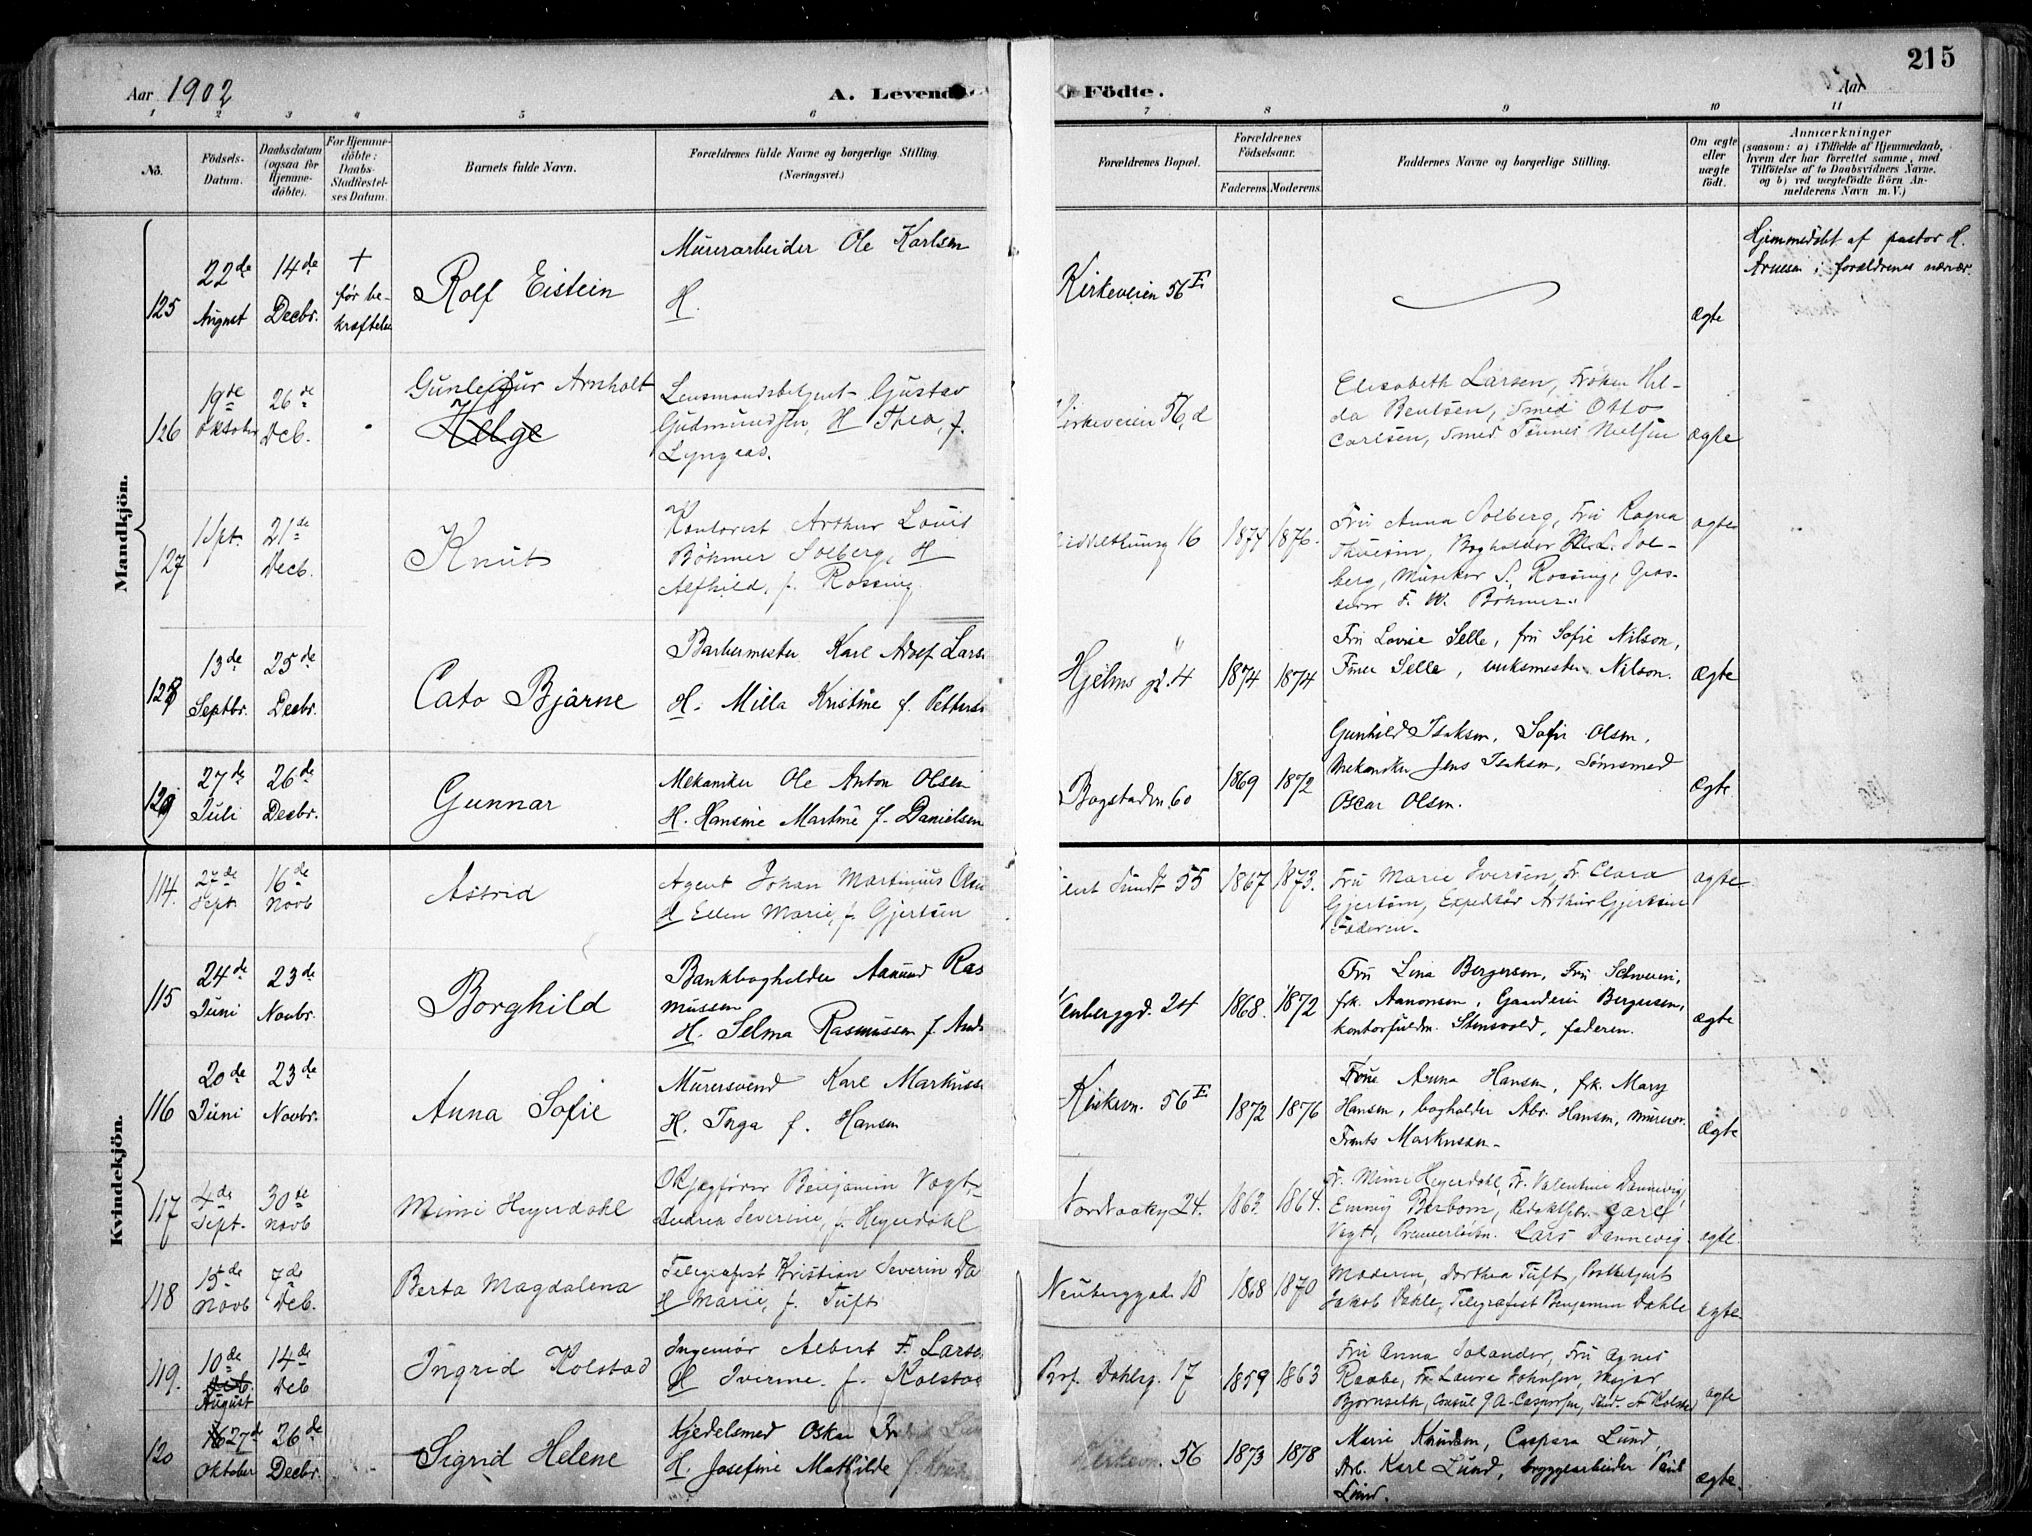 215
Aar 1902
A. Levende Födte.
Aar
1 2 3 4 5 6 7 8 9 10 11
No.
Födsels-
Datum.
Daabsdatum
(ogsaa for
Hjemme-
döbte).
For Hjemme-
döbte:
Daabs-
Stadfæstel-
ses Datum.
Barnets fulde Navn.
Forældrenes fulde Navne og borgerlige Stilling.
(Næringsvei.)
Forældrenes Bopæl.
Forældrenes
Födselsaar.
Faderens.
Moderens.
Faddernes Navne og borgerlige Stilling.
Om ægte
eller
uægte
födt.
Anmærkninger
(saasom: a) i Tilfælde af Hjemmedaab,
hvem der har forrettet samme, med
Tilföielse af to Daabsvidners Navne,
og b) ved uægtefödte Börn An-
melderens Navn m. V.)
Mandkjön.
125
22de
August
14de
Decbr.
+
før be-
kræftelse
Rolf Eistein
Murerarbeider Ole Karlsen
H.
Kirkeveien 56 E
Ægte
Hjemmedøbt af pastor H.
i forældrenes nærvær.
126
19de
Oktober
26de
Deb.
Gunleifur Arnholt
Helge
Lensmandsbetjent Gustav
Gudmundsen, H Thea, f.
Lyngaas.
Kirkeveien 56, d
Elisabeth Larsen, Frøken Hil-
da Bentsen, Smed Otto
Carlsen, Smed Tønnes Nielsen
ægte
127
1 Spt.
21de
Decb.
Knut
Kontorist Arthur Louis
Böhmer Solberg, H
Alfhild, f. Rossing
16
1874
1876.
Fru Anna Solberg, Fru Ragna
Thuesen, Bogholder M. L. Sol-
berg, Musiker S. Rossing, Gros-
serer F. W. Böhmer.
ægte
128
13de
Septbr.
25de
Decbr.
Cato Bjärne
Barbermester Karl Adolf Lars
H. Milla Kristine f. Petters
Hjelms gd. 4
1874
1874
Fru Lovise Selle, fru Sofie Nilson,
Selle, verksmester Nilson.
Ægte
129
27de
Juli
26de
Decbr.
Gunnar
Mekaniker Ole Anton Olsen
H. Hansine Martine f. Danielsen
Bogstadvn 60
1869
1872
Gunhild Isaksen, Sofie Olsen,
Mekaniker Jens Isaksen, Sømsmed
Oscar Olsen.
Ægte
Kvindekjön.
114.
27de
Sept.
16de
Novb
Astrid
Agent Johan Martinius Olsen
H Ellen Marie, f. Gjertsen
Eilert Sundt 55
1867
1873.
Fru Marie Iversen, Fr. Clara
Gjertsen, Expeditør Arthur Gjertsen
Faderen.
ægte
115
24de
Juni
23de
Novbr.
Borghild
Bankbogholder Aanund Ras
mussen
H. Selma Rasmussen f. And
Neuberggd. 24
1868.
1872
Fru Lina Bergersen, Fru Schwerin,
frk. Aanonsen, Bergersen,
kontorfuldm. Stensvold, faderen.
ægte
116
20de
Juni
23de
Novbr.
Anna Sofie
Murersvend Karl Markuss
H. Inga f. Hansen
Kirkevn. 56 E
1872
1876
Frue Anna Hansen, frk. Mary
Hansen, bogholder Abr. Hansen, murersv.
Frants Markussen.
Ægte
117
4de
Sept.
30de
Novb
Mimi Heyerdahl
Sagfører Benjamin Vogt,
Andrea Severine, f. Heyerdahl
Nordraaksg 24.
1863.
1864.
Fr. Mimi Heyerdahl, Fr. Valentine Dannevig,
Emmy Berbom, Redaktør Carl
Vogt, Premierløitn. Lars Dannevig
ægte.
118
15de
Novb
7de
Deb.
Berta Magdalena
Telegrafist Kristian Severin Da
H Marie, f. Tuft
Neuberggad. 18
1868
1870
Moderen, Dorthea Tuft, Postbetjent
Jakob Dahle, Telegrafist Benjamin Dahle
ægte
119.
10de
Deb.
August
14de
Deb
Ingrid Kolstad
Ingeniør Albert F. Larse
H Iverine f. Kolstad
Prof. Dahlsg. 17
1859
1863
Fru Anna Solander, Fru Agnes
Raabe, Fr. Laura Johnsen, Major
Bjørnseth, Consul J. A. Caspersen, Stud. A Kolstad
ægte
120
27de
Oktober
26de
Decbr.
Sigrid Helene
Kjedelsmed Oskar Fredrik Lund
H. Josefine Mathilde f
Kirkevn. 56
1873
1878
Marie Knudsen, Caspara Lund,
Arb. Karl Lund, bryggearbeider Paul
Lund.
ægte.